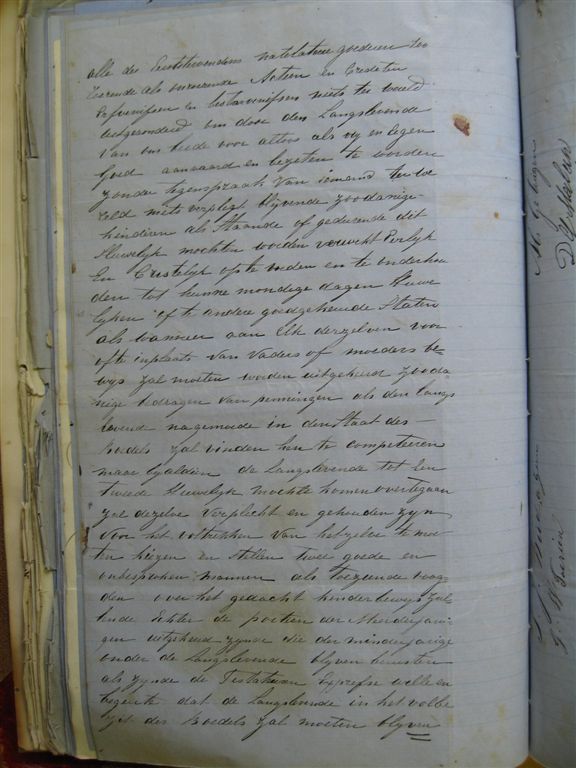 alle des Eerststervendens natelatene goederen zoo
roerende als onroerende Actien en Crediten
Erfvenissen en besterfvenissen niets ter wereld
uitgezonderd om door den Langstlevende
van ons beide voor altoos als vry en eigen
Goed aanvaard en bezeten te worden
zonder tegenspraak van iemand ter we
reld mits verpligt blijvende zoodanige
kinderen als staande of gedurende dit
Huwelyk mochten worden verwekt Eerlyk
En Christelyk op te voeden en te onderhou
den tot hunne mondige dagen Huwe
lyken of te andere goedgekeurde Staten
als wanneer aan Elk derzelven voor
of te inplaats van Vaders of moeders be=
wijs zal moeten worden uitgekeerd zooda=
nige bedragen van penningen als den langst
levende nagemoede in den Staat des
boedels zal vinden hen te competeeren
maar byaldien de Langstlevende tot Een
tweede Huwelyk mochte komen overtegaan
zal dezelve verplicht en gehouden zyn
voor het voltrekken van hetzelve te moe
ten kiezen en stellen twee goede en
onbesproken mannen als toeziende voog=
den over het gedacht kinderbewys zul
lende Echter de portien der Meerderjari
gen uitgekeerd zynde die der minderjarige
onder de Langstlevende blyven berusten
als zynde de Testateuren Expresse wille en
begeerte dat de Langstlevende in het volle
bezit des Boedels zal moeten blyven